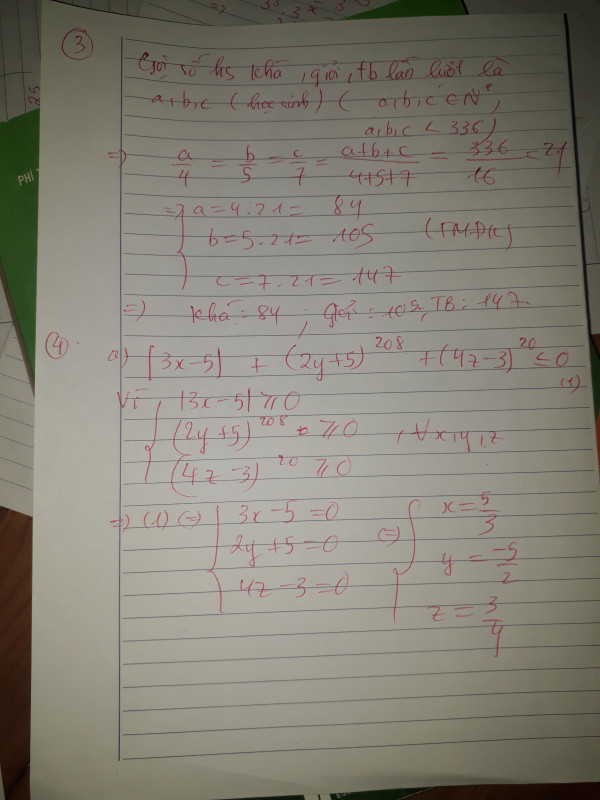 ③
Gọi số hs khá, giỏi, tb lần lượt là
a, b, c (học sinh) ( a, b, c ∈ N*,
a, b, c < 336)
=> a/4 = b/5 = c/7 = (a+b+c)/(4+5+7) = 336/16 = 21
=> { a = 4.21 = 84
b = 5.21 = 105 (TMĐK)
c = 7.21 = 147
=> Khá: 84 ; giỏi: 105, TB: 147.
④ a) |3x-5| + (2y+5)^208 + (4z-3)^20 ≤ 0
(1)
Vì { |3x-5| ≥ 0
(2y+5)^208 ≥ 0 , ∀x, y, z
(4z-3)^20 ≥ 0
=> (1) <=> { 3x-5=0 <=> { x = 5/3
2y+5=0 y = -5/2
4z-3=0 z = 3/4
PHI
25